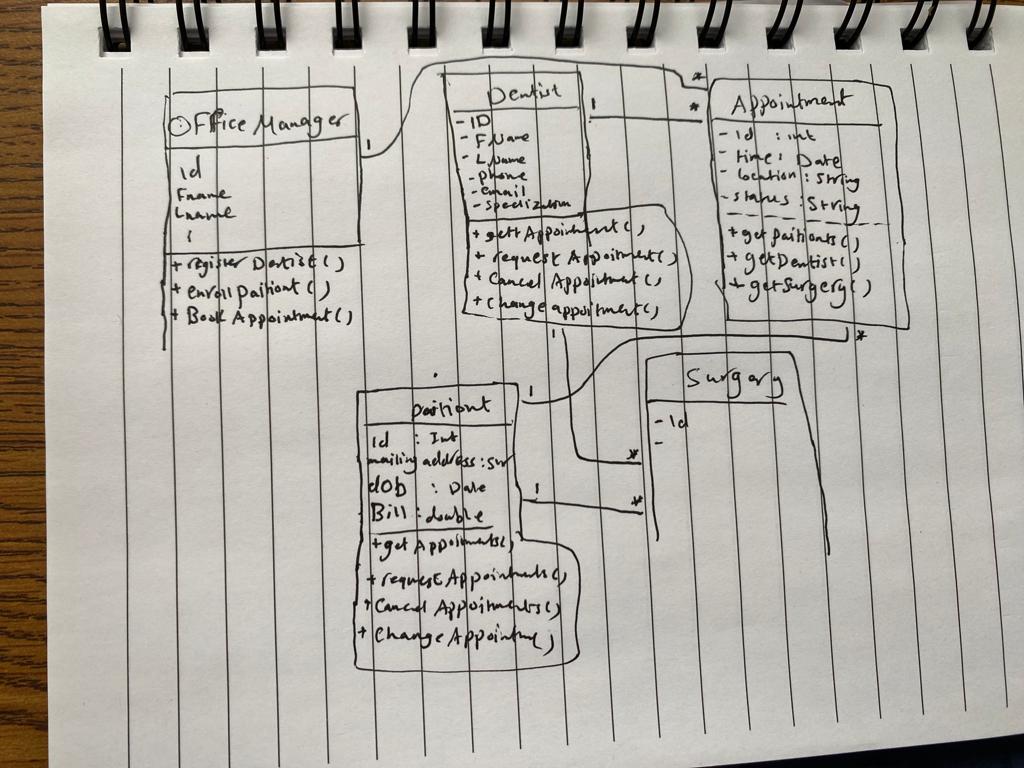 Office Manager
Id
Fname
Lname
+ register Dentist()
+ enroll paitiont()
+ Book Appointment()
1
Dentist
- ID
- F Name
- L Name
- phone
- email
+ gett Appointment()
+ request Appointment()
+ Cancel Appointment()
+ Change appoitment()
1
*
*
Appointment
- Id : int
- time : Date
- location : String
- status : String
+ get paitionts()
+ getDentist()
+ getSurgery()
1
*
1
paitiont
Id : Int
mailing address : Str
dOb : Date
Bill : double
+ get Appoitments()
+ request Appointments()
+ Cancel Appoitments()
+ Change Appointm()
1
*
*
Surgery
- Id
-